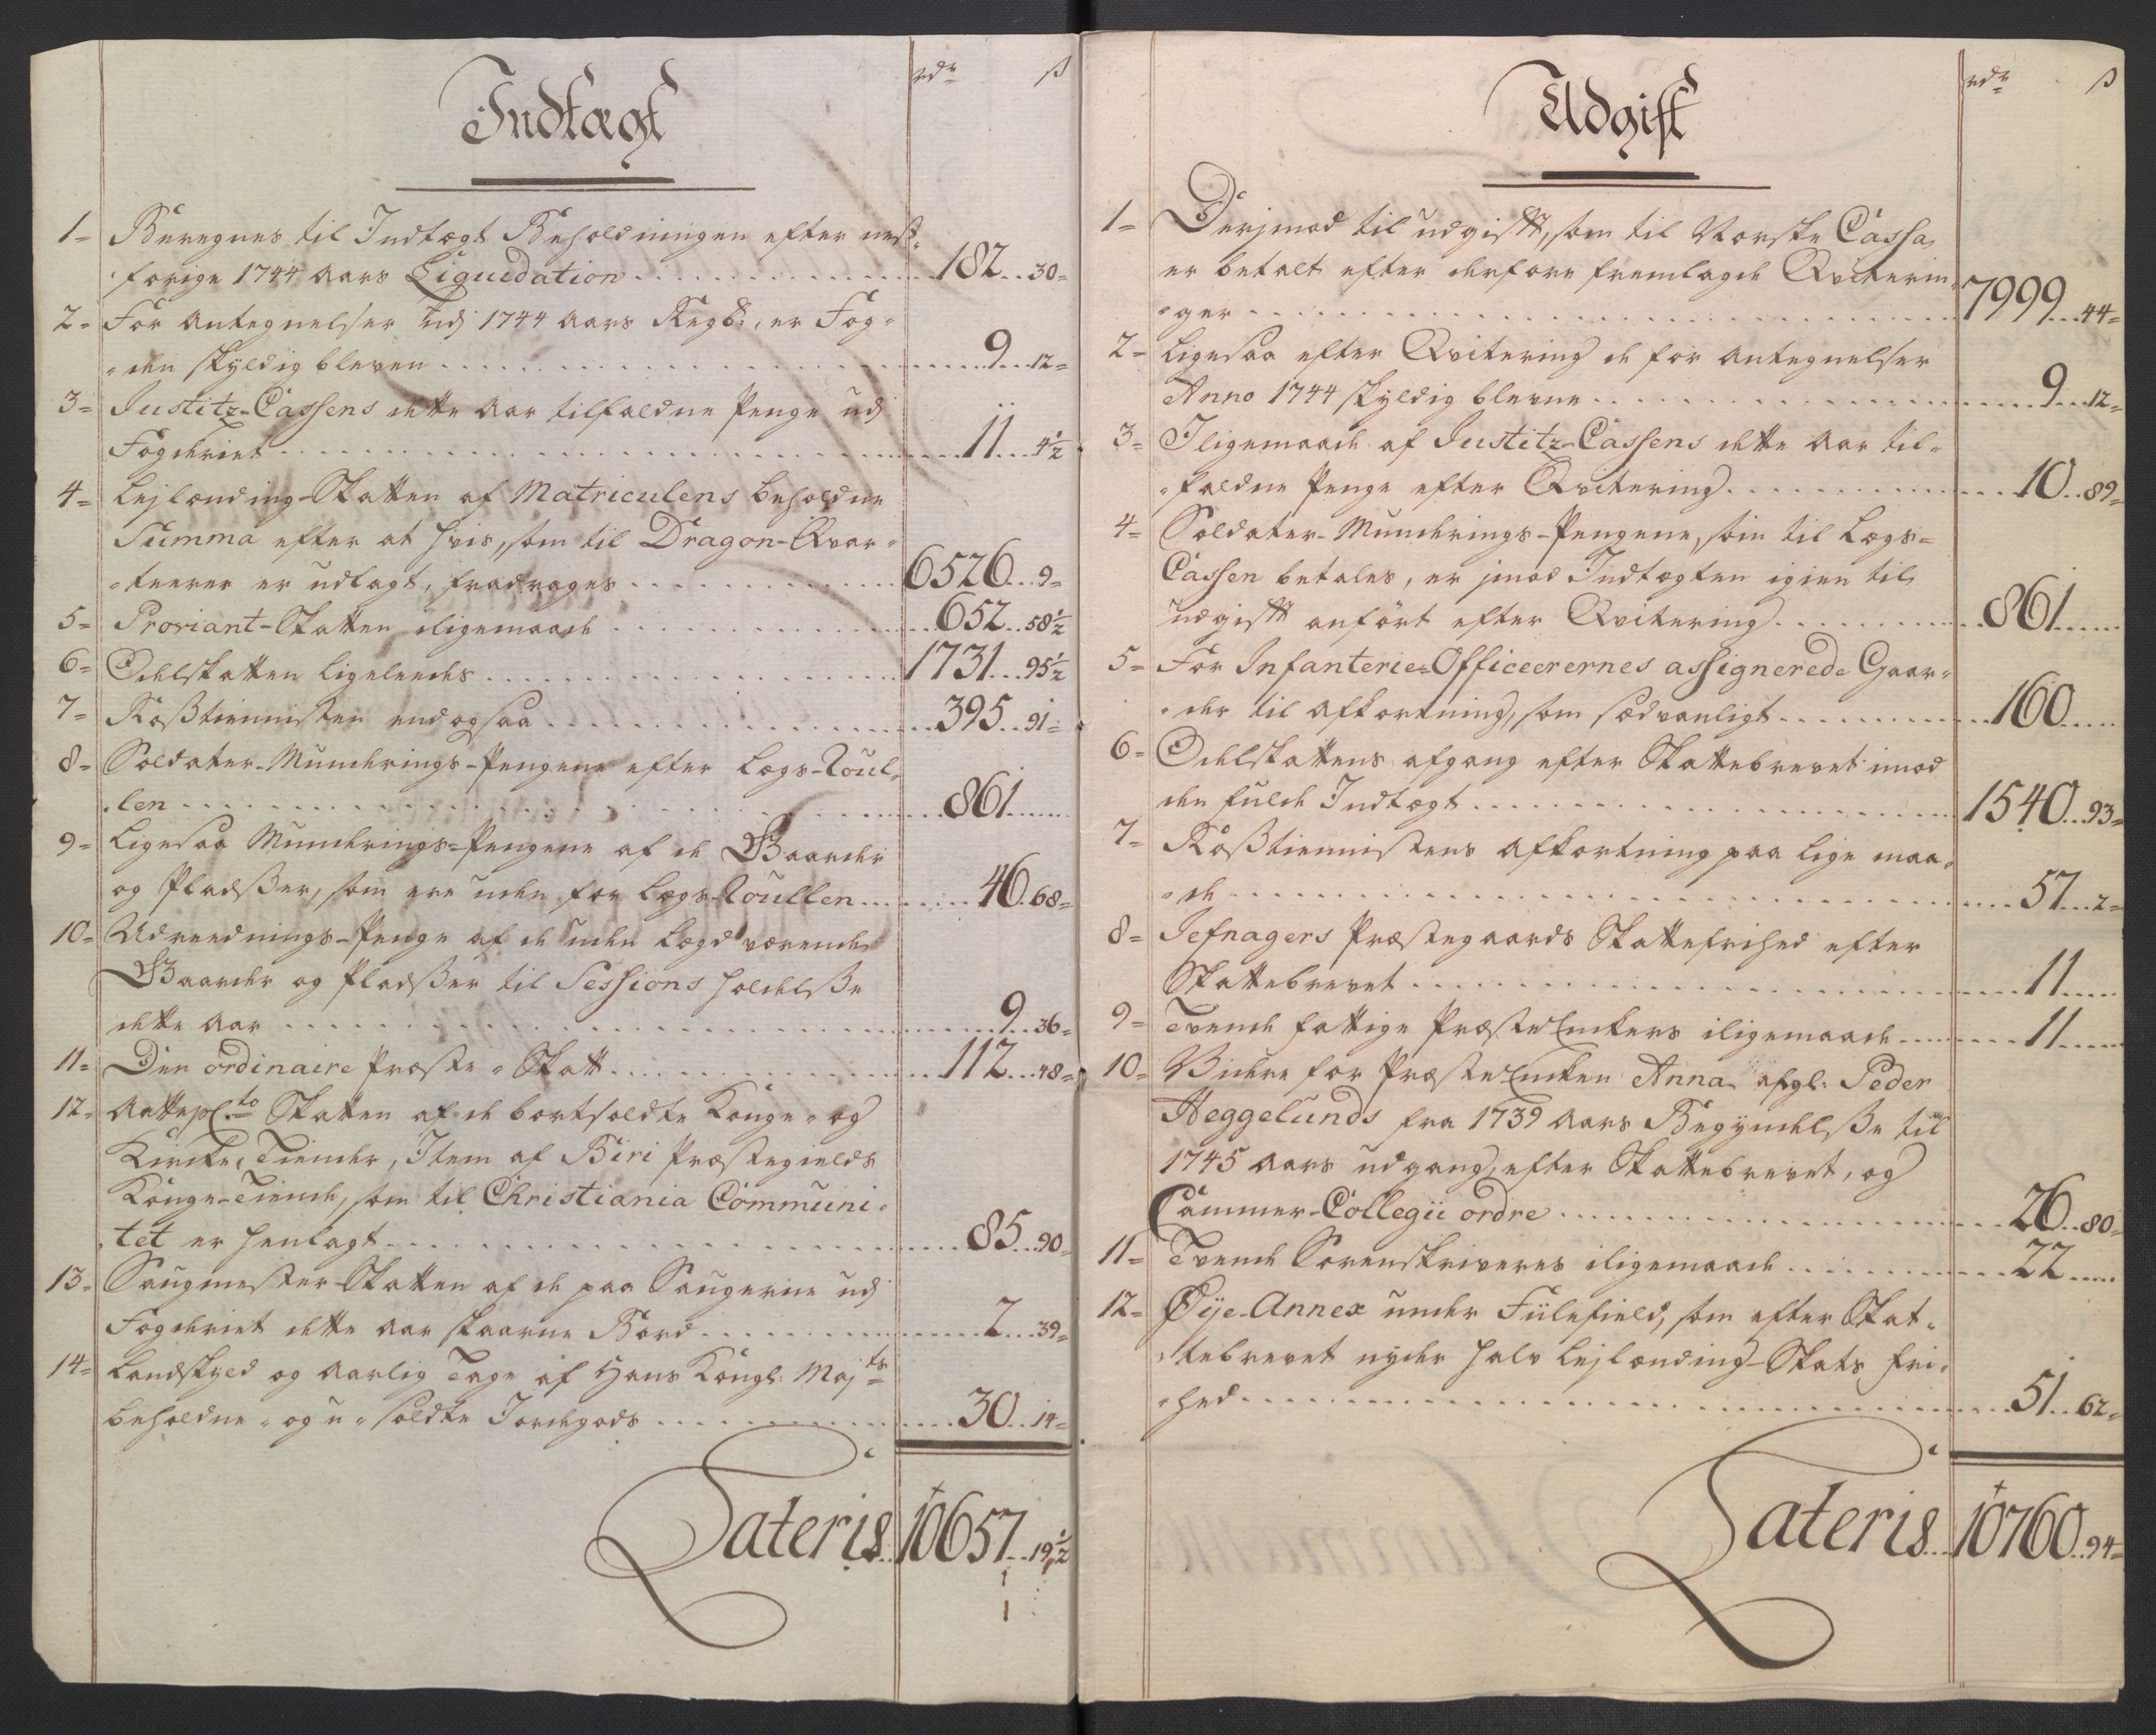 Indtægt
rdr ß
1= Beregnes til Indtægt Beholdningen efter nest-
forige 1744 Aars Liquidation 182.. 30=
2= For Antegnelser udj 1744 Aars Regsk:, er Fog-
den skyldig bleven 9.. 12=
3= Justitz-Cassens dette Aar tilfaldne Penge udj
Fogderiet 11.. 4½
4= Lejlænding-Skatten af Matriculens beholdne
Summa efter at hvis, som til Dragon-Qvar-
teerer er udlagt, fradrages 6526.. 9=
5= Proviant-Skatten iligemaade 652.. 58½
6= Odelskatten ligeleedes 1731.. 95½
7= Roßtiennisten endogsaa 395.. 91=
8= Soldater-Munderings-Pengene efter Lægs-Roul-
len 861
9= Ligesaa Munderings-Pengene af de Gaarder
og Pladßer, som ere uden for Lægs-Roullen 46. 68=
10= Udreednings-Penge af de uden Lægd værende
Gaarder og Pladßer til Sessions Holdelße
dette Aar 9.. 36=
11= Den ordinaire Præste-Skatt 112.. 48=
12= Aattepc.to Skatten af de bortsoldte Konge- og
Kircke-Tiender, Item af Biri Præstegields
Konge-Tiende, som til Christiania Communi-
tet er henlagt 85.. 90=
13= Saugmester-Skatten af de paa Saugerne udj
Fogderiet dette Aar skaarne Bord 2.. 39=
14= Landskyld og Aarlig Tage af Hans Kongl: Majts
beholdne- og u-soldte Jordegods 30.. 14=
Lateris 10657.. 19½
Udgift
rdr ß
1= Derjmod til udgift, som til Norske Cassa
er betalt efter derfore fremlagde Qviterin-
ger 7999.. 44=
2= Ligesaa efter Qvitering de for Antegnelser
Anno 1744 skyldig blevne 9.. 12=
3= Iligemaade af Justitz-Cassens dette Aar til-
faldne Penge efter Qvitering 10.. 89=
4= Soldater-Munderings-Pengene, som til Lægs-
Cassen betales, er jmod Indtægten igien til
udgift anført efter Qvitering 861
5= For Infanterie-Officeerernes assignerede Gaar-
der til Afkortning, som sædvanligt 160
6= Odelskattens afgang efter Skattebrevet imod
den fulde Indtægt 1540.. 93=
7= Roßtiennistens Afkortning paa lige maa-
de 57.. 2=
8= Jefnagers Præstegaards Skattefrihed efter
Skattebrevet 11
9= Tvende fattige Præste Enkers iligemaade 11
10= Videre for Præste Enken Anna afgl: Peder
Heggelunds fra 1739 Aars Begyndelße til
1745 Aars udgang, efter Skattebrevet, og
Cammer-Collegii ordre 26.. 80=
11= Tvende Sorenskriveres iligemaade 22
12= Øije-Annex under Fillefield, som efter Skat-
tebrevet nyder halv Lejlænding-Skats fri-
hed 51.. 62=
Lateris 10760.. 94=